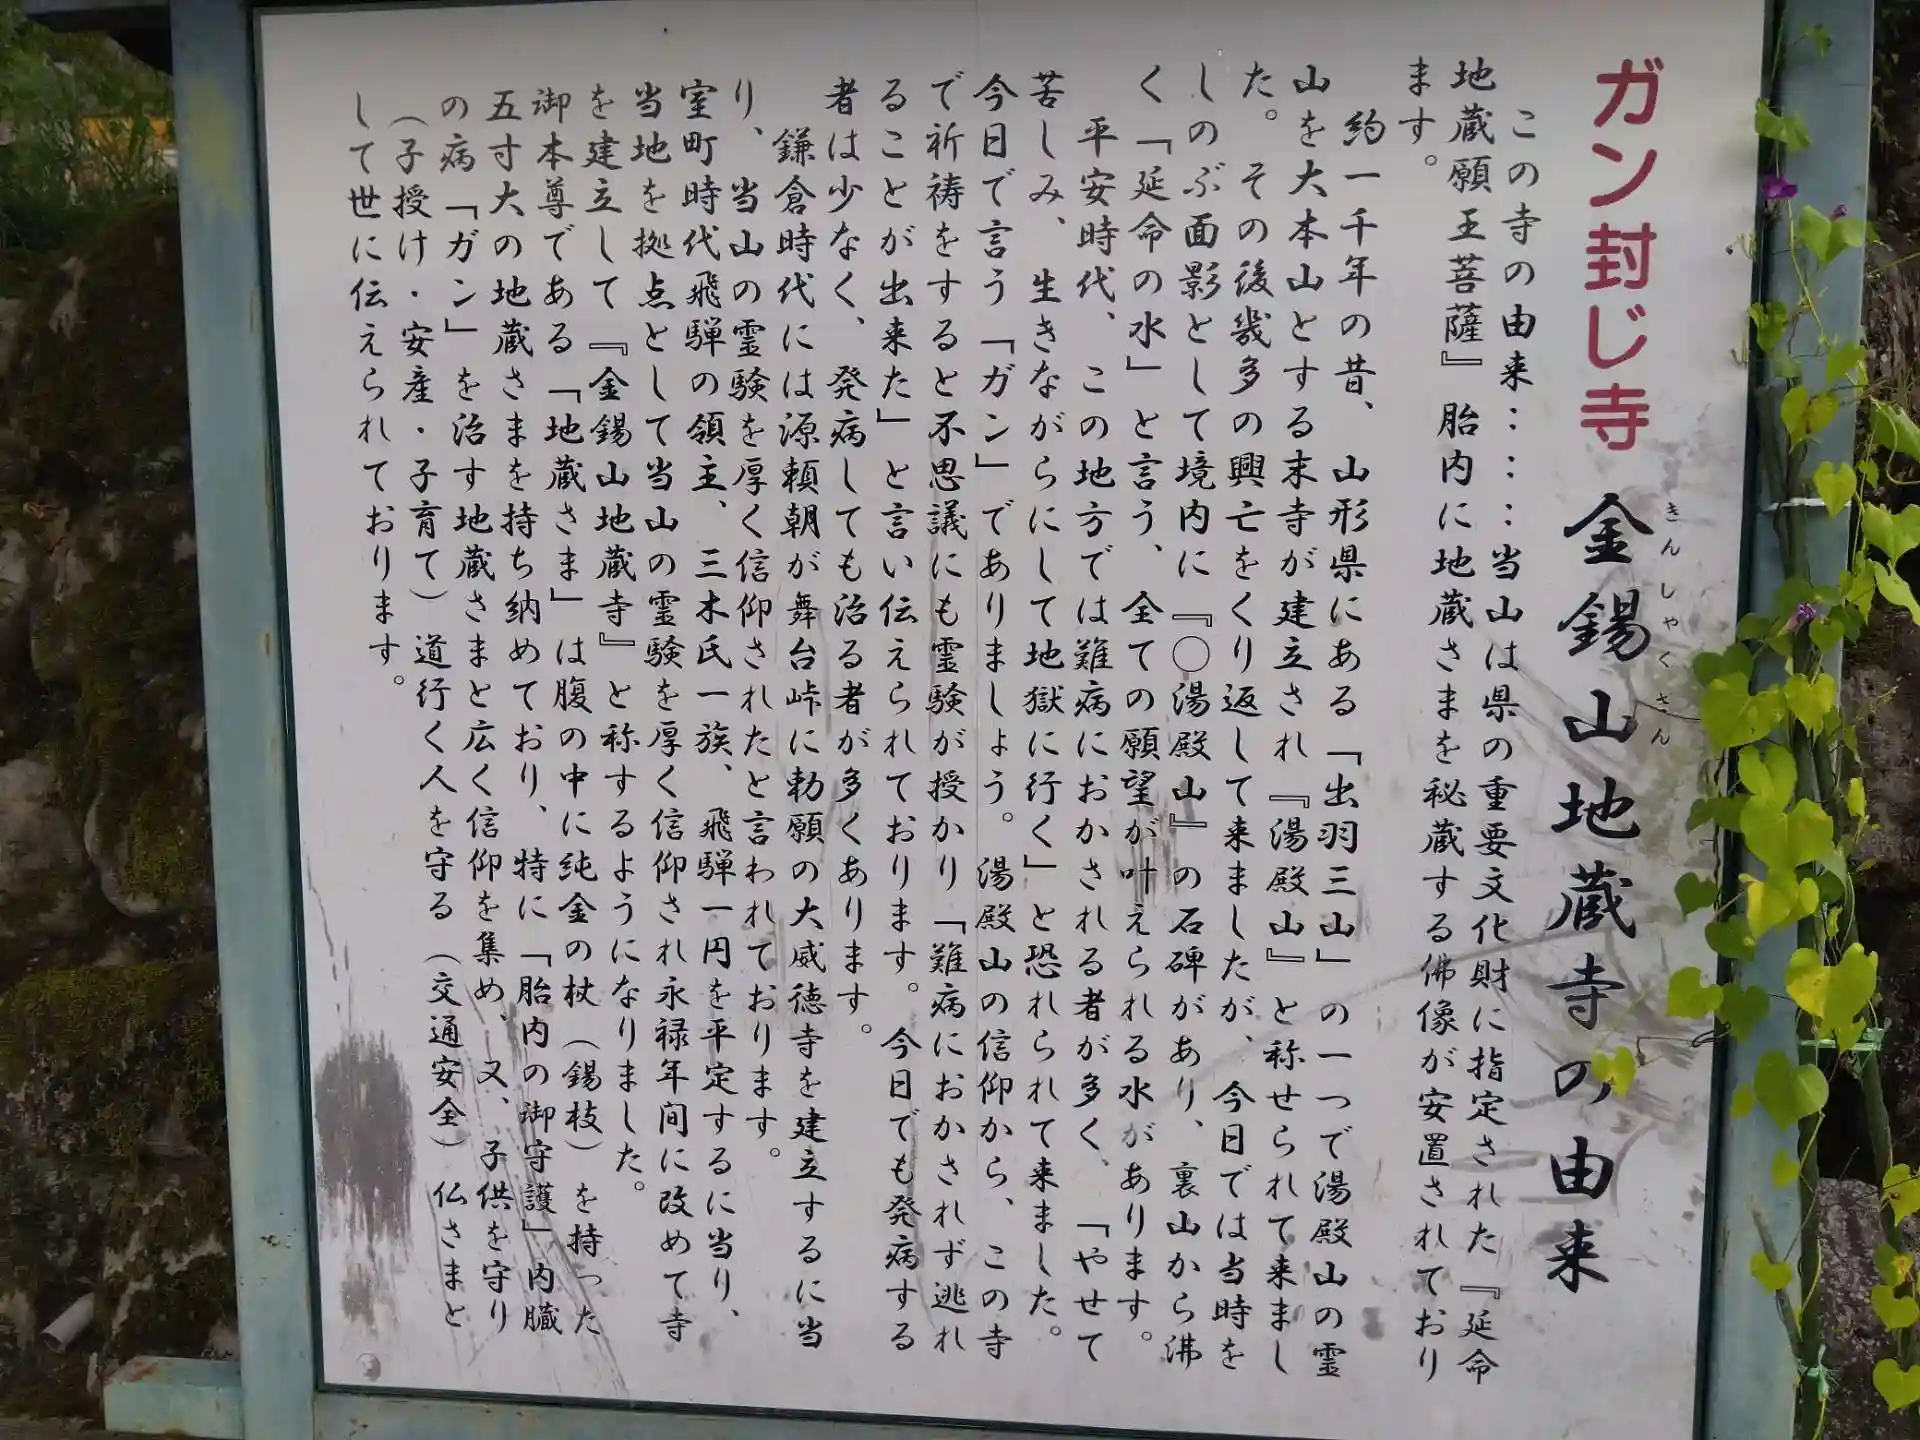 ガン封じ寺 金錫山地蔵寺の由来
きんしゃくさん
この寺の由来……当山は県の重要文化財に指定された『延命
地蔵願王菩薩』胎内に地蔵さまを秘蔵する佛像が安置されており
ます。
約一千年の昔、山形県にある「出羽三山」の一つで湯殿山の霊
山を大本山とする末寺が建立され『湯殿山』と称せられて来まし
た。その後幾多の興亡をくり返して来ましたが、今日では当時を
しのぶ面影として境内に『〇湯殿山』の石碑があり、裏山から沸
く「延命の水」と言う、全ての願望が叶えられる水があります。
平安時代、この地方では難病におかされる者が多く、「やせて
苦しみ、生きながらにして地獄に行く」と恐れられて来ました。
今日で言う「ガン」でありましょう。湯殿山の信仰から、この寺
で祈祷をすると不思議にも霊験が授かり「難病におかされず逃れ
ることが出来た」と言い伝えられております。今日でも発病する
者は少なく、発病しても治る者が多くあります。
鎌倉時代には源頼朝が舞台峠に勅願の大威徳寺を建立するに当
り、当山の霊験を厚く信仰されたと言われております。
室町時代飛騨の領主、三木氏一族、飛騨一円を平定するに当り、
当地を拠点として当山の霊験を厚く信仰され永禄年間に改めて寺
を建立して『金錫山地蔵寺』と称するようになりました。
御本尊である「地蔵さま」は腹の中に純金の杖（錫枝）を持った
五寸大の地蔵さまを持ち納めており、特に「胎内の御守護」内臓
の病「ガン」を治す地蔵さまと広く信仰を集め、又、子供を守り
（子授け・安産・子育て）道行く人を守る（交通安全）仏さまと
して世に伝えられております。